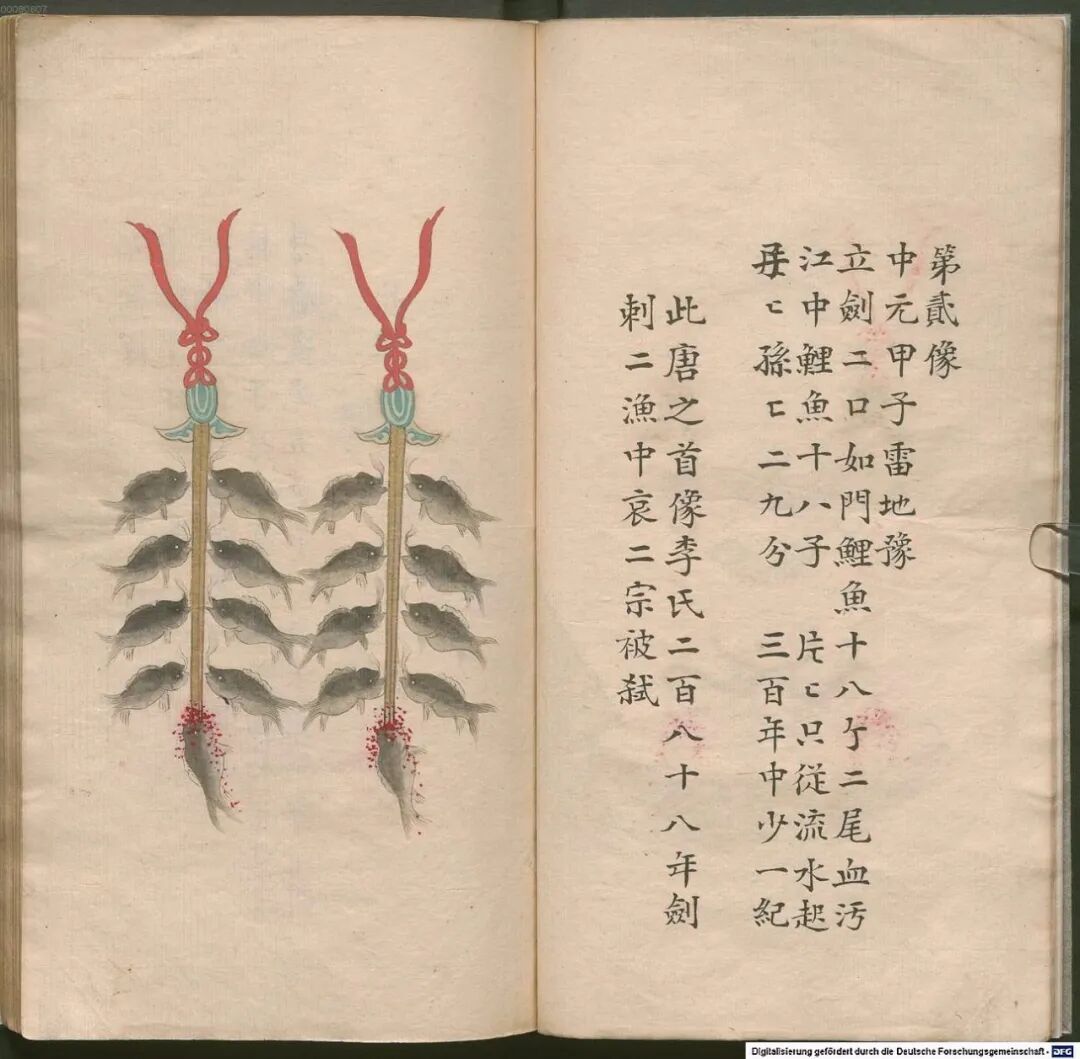 00080607
第貳像
中元甲子雷地豫
立劍二口如門鯉魚十八亇二尾血汚
江中鯉魚十八子 片〻只從流水起
〻孫〻二九分 三百年中少一紀
此唐之首像李氏二百八十八年劍
刺二漁中哀二宗被弑
Digitalisierung gefördert durch die Deutsche Forschungsgemeinschaft - DFG